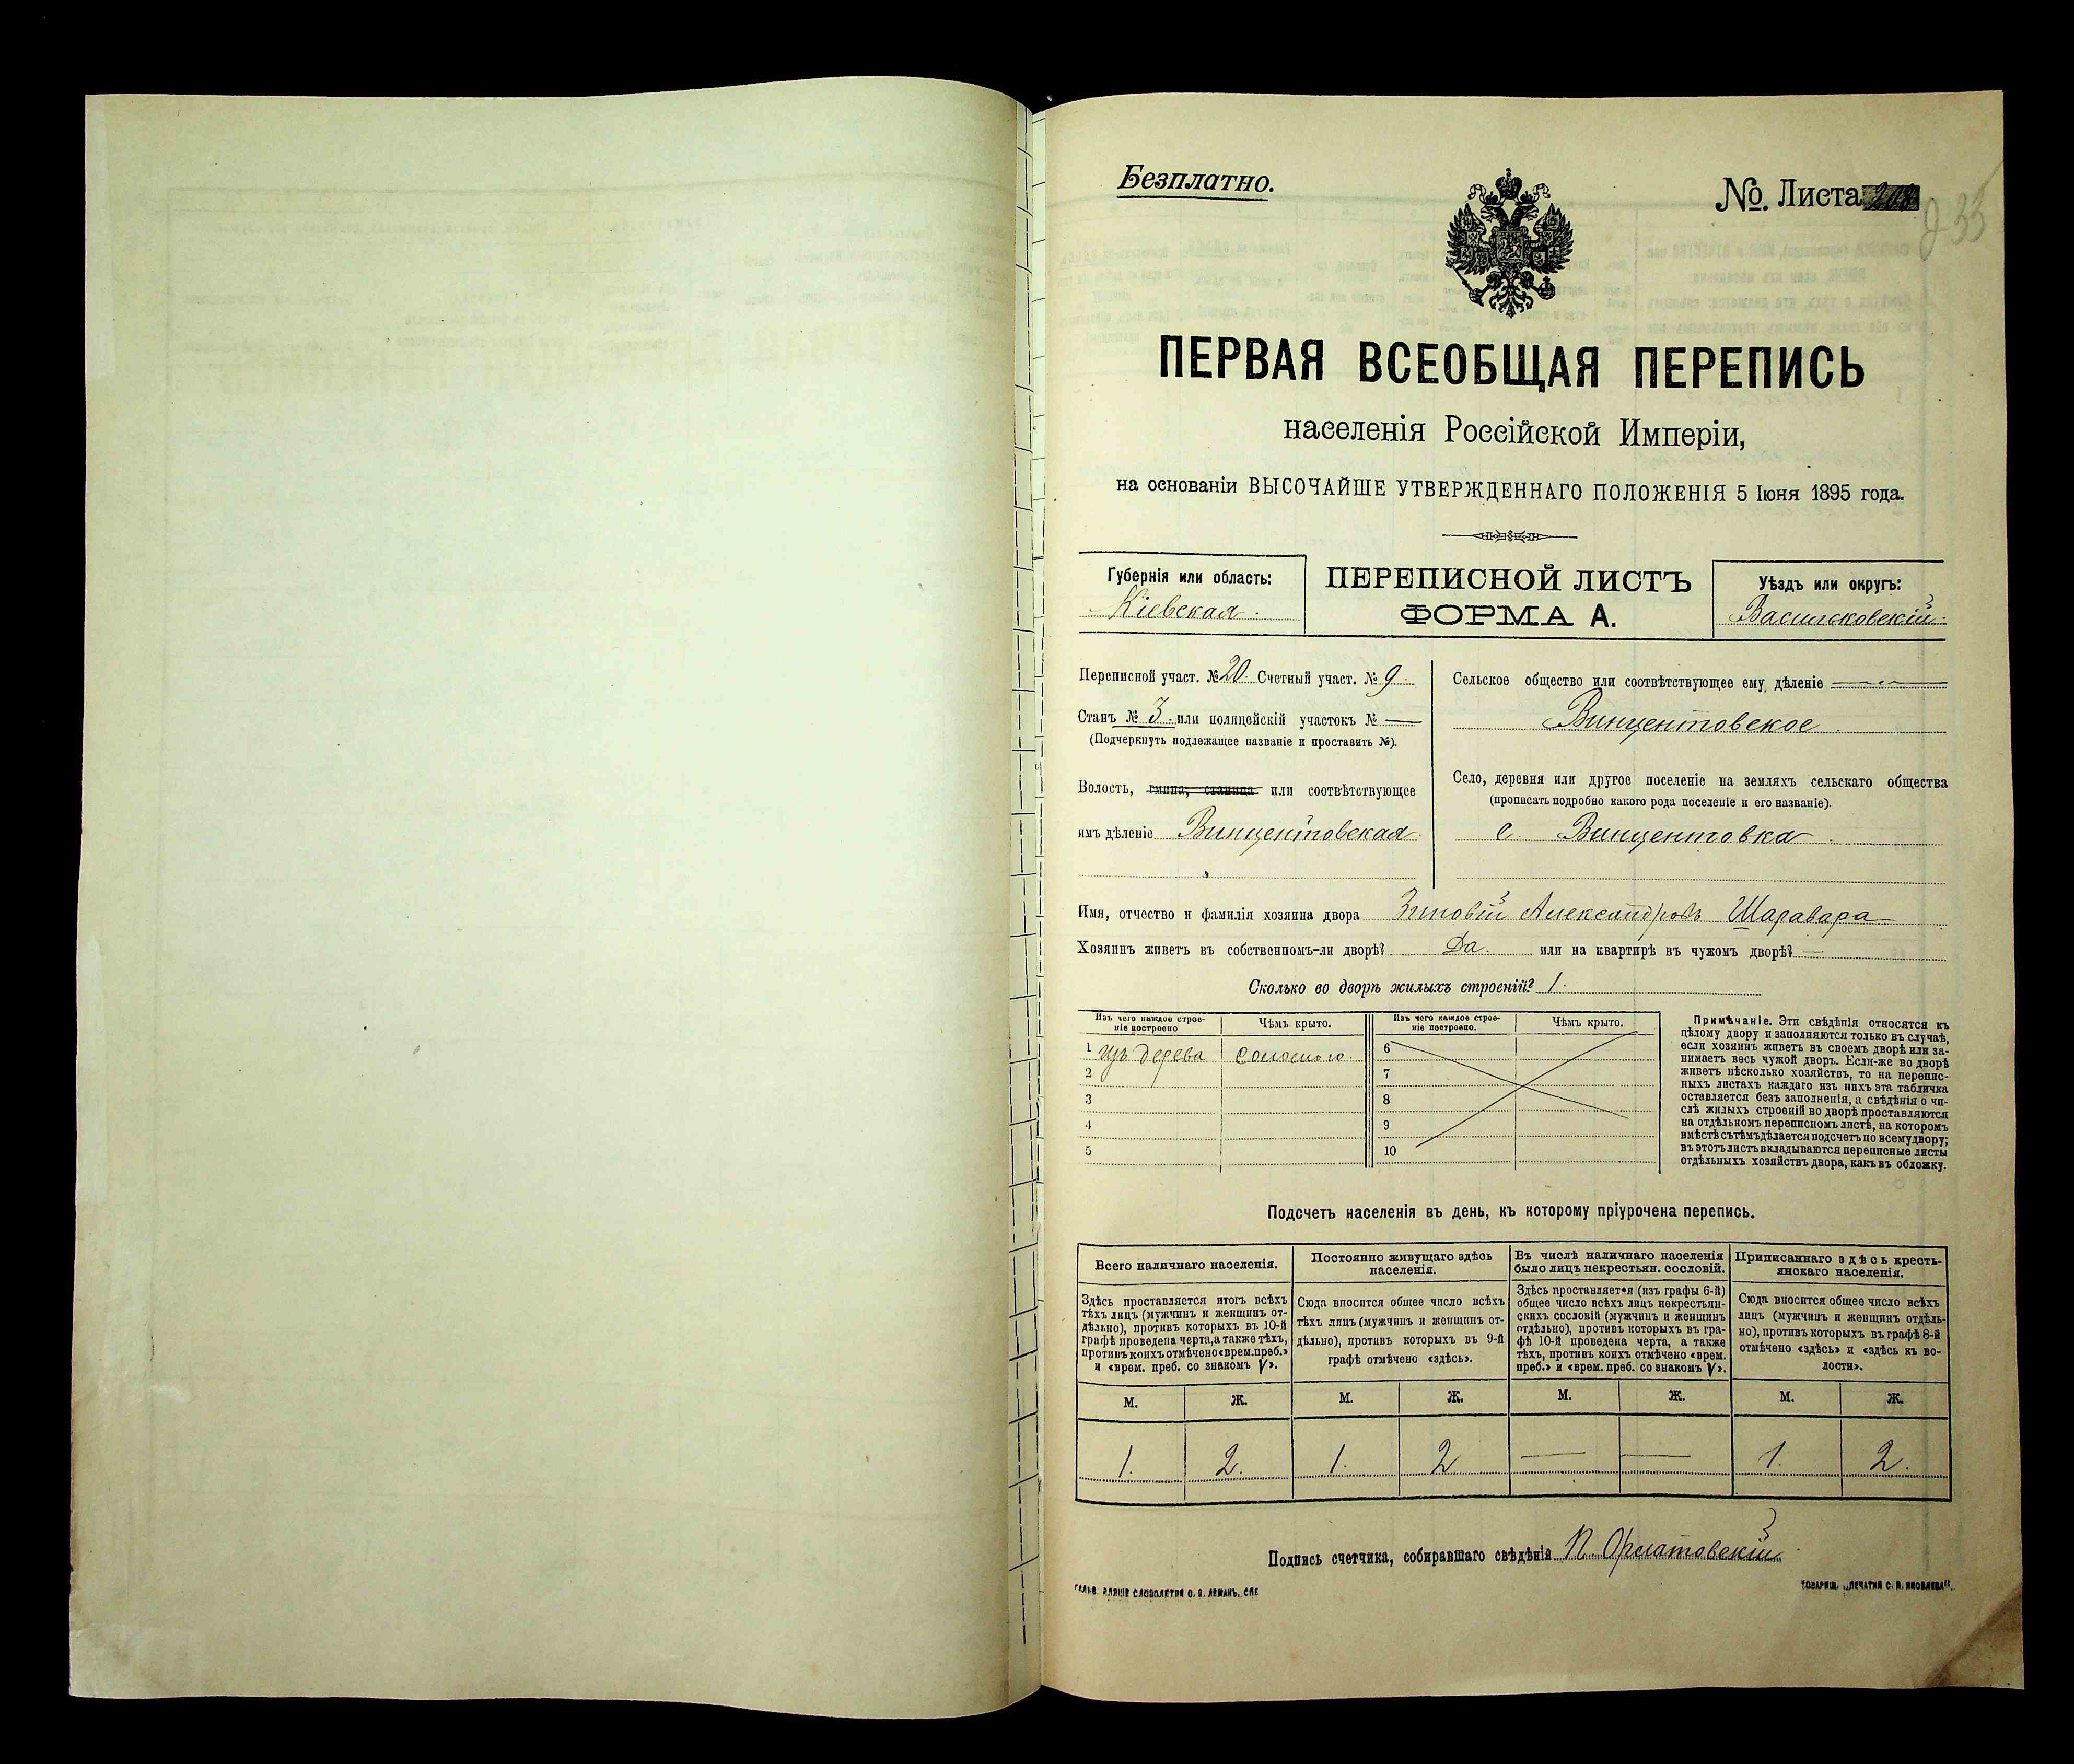 Безплатно.
№. Листа 208
233
ПЕРВАЯ ВСЕОБЩАЯ ПЕРЕПИСЬ
населенія Россійской Имперіи,
на основаніи ВЫСОЧАЙШЕ УТВЕРЖДЕННАГО ПОЛОЖЕНІЯ 5 Іюня 1895 года.
Губернія или область:
Кіевская.
ПЕРЕПИСНОЙ ЛИСТЪ
ФОРМА А.
Уѣздъ или округъ:
Васильковскій.
Переписной участ. № 20. Счетный участ. № 9.
Станъ № 3. или полицейскій участокъ № —
(Подчеркнуть подлежащее названіе и проставить №).
Волость, гмина, станица или соотвѣтствующее
имъ дѣленіе Винцентовская.
Сельское общество или соотвѣтствующее ему дѣленіе
Винцентовское.
Село, деревня или другое поселеніе на земляхъ сельскаго общества
(прописать подробно какого рода поселеніе и его названіе).
с. Винцентовка.
Имя, отчество и фамилія хозяина двора Зиновій Александровъ Шаравара
Хозяинъ живетъ въ собственномъ-ли дворѣ? Да. или на квартирѣ въ чужомъ дворѣ? —
Сколько во дворѣ жилыхъ строеній? 1.
Изъ чего каждое строе-
ніе построено
Чѣмъ крыто.
1 изъ дерева соломою.
2
3
4
5
Изъ чего каждое строе-
ніе построено.
Чѣмъ крыто.
6
7
8
9
10
Примѣчаніе. Эти свѣдѣнія относятся къ
цѣлому двору и заполняются только въ случаѣ,
если хозяинъ живетъ въ своемъ дворѣ или за-
нимаетъ весь чужой дворъ. Если-же во дворѣ
живетъ нѣсколько хозяйствъ, то на перепис-
ныхъ листахъ каждаго изъ нихъ эта табличка
оставляется безъ заполненія, а свѣдѣнія о чи-
слѣ жилыхъ строеній во дворѣ проставляются
на отдѣльномъ переписномъ листѣ, на которомъ
вмѣстѣ съ тѣмъ дѣлается подсчетъ по всему двору;
въ этотъ листъ вкладываются переписные листы
отдѣльныхъ хозяйствъ двора, какъ въ обложку.
Подсчетъ населенія въ день, къ которому пріурочена перепись.
Всего наличнаго населенія.
Здѣсь проставляется итогъ всѣхъ
тѣхъ лицъ (мужчинъ и женщинъ от-
дѣльно), противъ которыхъ въ 10-й
графѣ проведена черта, а также тѣхъ,
противъ коихъ отмѣчено «врем. преб.»
и «врем. преб. со знакомъ V».
Постоянно живущаго здѣсь
населенія.
Сюда вносится общее число всѣхъ
тѣхъ лицъ (мужчинъ и женщинъ от-
дѣльно), противъ которыхъ въ 9-й
графѣ отмѣчено «здѣсь».
Въ числѣ наличнаго населенія
было лицъ некрестьян. сословій.
Здѣсь проставляется (изъ графы 6-й)
общее число всѣхъ лицъ некрестьян-
скихъ сословій (мужчинъ и женщинъ
отдѣльно), противъ которыхъ въ гра-
фѣ 10-й проведена черта, а также
тѣхъ, противъ коихъ отмѣчено «врем.
преб.» и «врем. преб. со знакомъ V».
Приписаннаго здѣсь кресть-
янскаго населенія.
Сюда вносится общее число всѣхъ
лицъ (мужчинъ и женщинъ отдѣль-
но), противъ которыхъ въ графѣ 8-й
отмѣчено «здѣсь» и «здѣсь къ во-
лости».
М. Ж. М. Ж. М. Ж. М. Ж.
1. 2. 1. 2 — — 1. 2.
Подпись счетчика, собиравшаго свѣдѣнія П.
СЛОВОЛИТНЯ О. И. ЛЕМАНЪ, СПБ
ТОВАРИЩ. „ПЕЧАТНЯ С. П. ЯКОВЛЕВА".